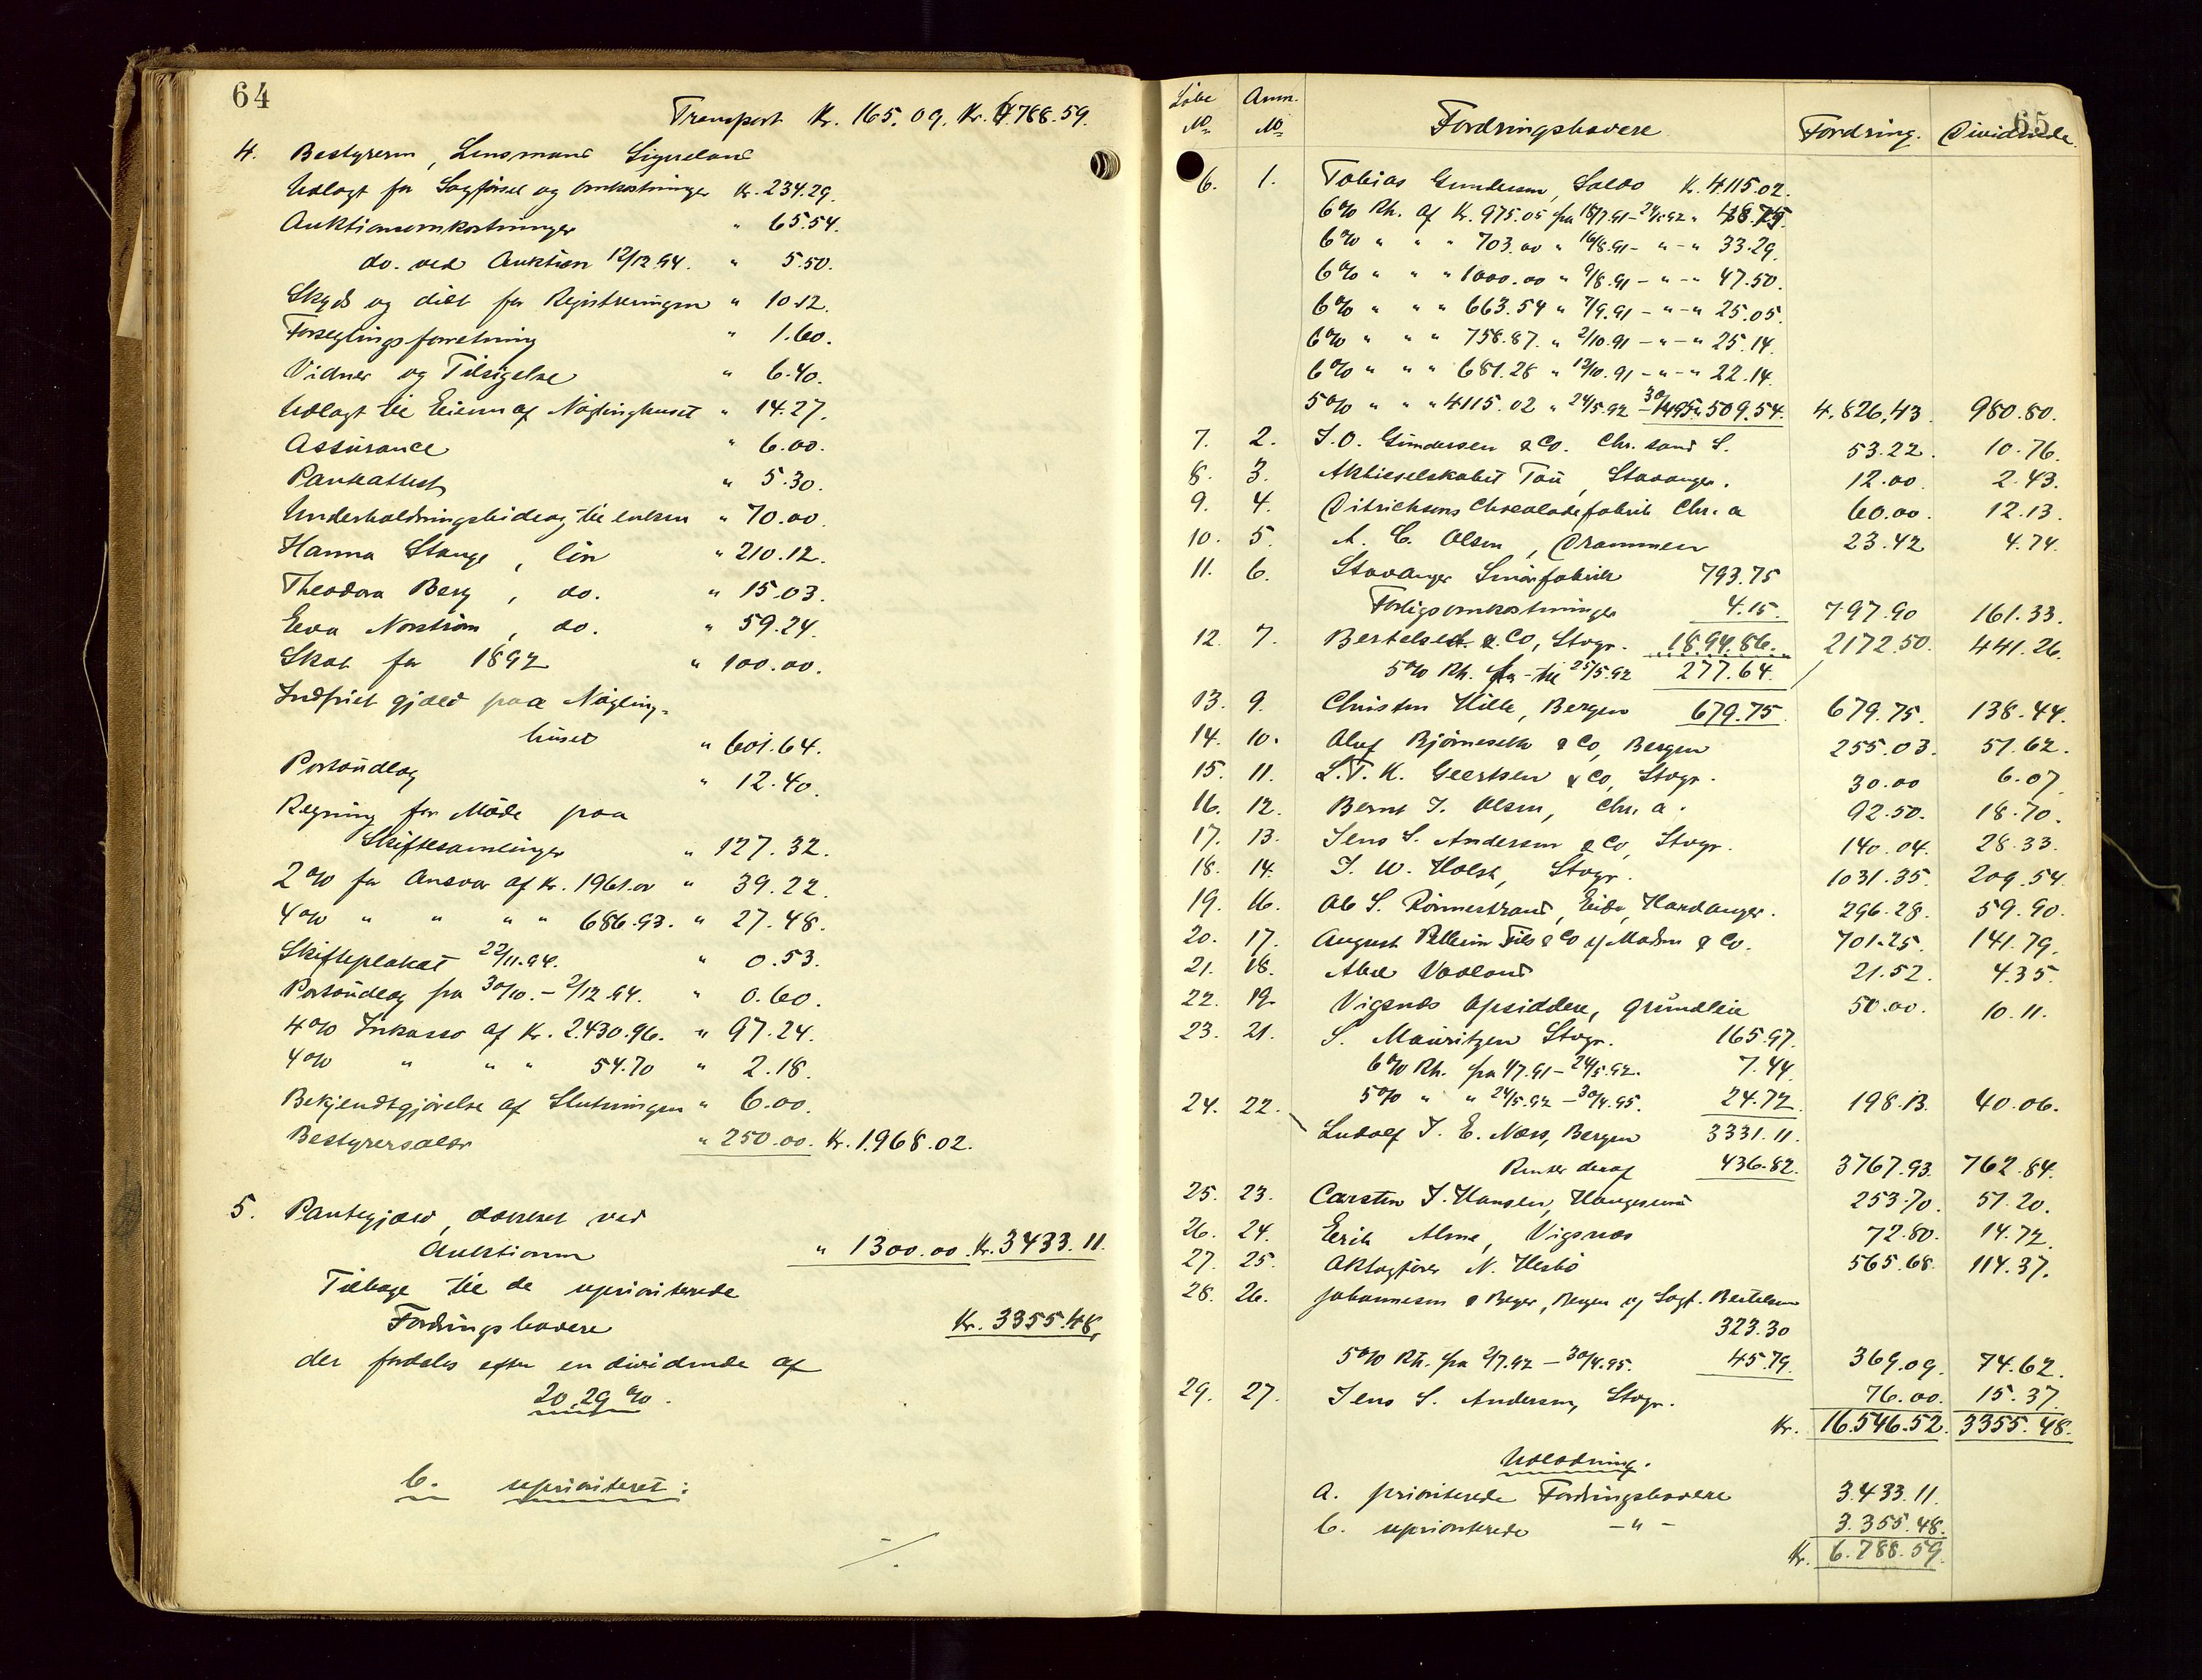 64
Transport Kr. 165.09. Kr. 6788.59.
4. Bestyreren, Lensmand Sigveland
Udlagt for Sagførsel og Omkostninger Kr. 234.29.
Auktionsomkostninger " 65.54.
do. ved Auktion 12/12.94. " 5.50.
Skyds og diæt for Registreringen " 10.12.
Forseglingsforretning " 1.60.
Vidner og Tilsigelse " 6.40.
Udlagt til Eieren af Nøglinghuset " 14.27.
Assurance " 6.00.
Panteattest " 5.30.
Underholdningsbidrag til enken " 70.00.
Hanna Stange, løn " 210.12.
Theodora Berg, do. " 15.03.
Eva Norstrøm, do. " 59.24.
Skat for 1892 " 100.00.
Indfriet gjæld paa Nøgling-
huset " 601.64.
Portoudlæg " 12.40.
Regning for Møde paa
Skiftesamlinger " 127.32.
2 % for Ansvar af Kr. 1961.00 " 39.22.
4 % " " " " 686.93. " 27.48.
Skifteplakat 22/11.94. " 0.53.
Portoudlæg fra 30/10. - 2/12.94. " 0.60.
4 % Inkasso af Kr. 2.430.96. " 97.24.
4 % " " " 54.70 " 2.18.
Bekjendtgjørelse af Slutningen " 6.00.
Bestyrersalær " 250.00. Kr. 1.968.02.
5. Pantegjæld, dækket ved
Auktionen " 1300.00. Kr. 3433.11.
Tilbage til de uprioriterede
Fordringshavere Kr. 3355.48,
der fordeles efter en dividende af
20,29 %.
b. uprioriteret:
·/.
65
Løbe No Anm. No Fordringshavere Fordring. Dividende.
6. 1. Tobias Gundersen, Saldo K. 4.115.02.
6 % Rt. af Kr. 975.05 fra 18/7.91 - 24/5.92 " 48.75.
6 % " " " 703.00 " 16/8.91 - " - " 33.29.
6 % " " " 1000.00 " 9/8.91 - " - " 47.50.
6 % " " " 663.54 " 7/9.91 - " - " 25.05.
6 % " " " 758.87. " 2/10.91 - " - " 25.14.
6 % " " " 681.28 " 12/10.91 - " - " 22.14.
5 % " " " 4115.02 " 24/5.92 - 30/4.95 " 509.54. 4.826,43 980.80.
7. 2. J. O. Gundersen & Co. Chr. sand S. 53.22. 10.76.
8. 3. Aktieselskabet Tou, Stavanger. 12.00. 2.43.
9. 4. Ditrichsens Chocoladefabrik Chr. a 60.00. 12.13.
10. 5. A. C. Olsen, Drammen 23.42 4.74.
11. 6. Stavanger Smørfabrik 793.75
Forligsomkostninger 4.15. 797.90 161.33.
12. 7. Bertelsen & Co, Stvgr. 18.94.86. 2172.50. 441.26.
5 % Rt. fra - til 25/5.92 277.64.
13. 9. Christen Hille, Bergen 679.75. 679.75. 138.44.
14. 10. Oluf Bjørneseth & Co, Bergen 255.03. 51.62.
15. 11. L. T. K. Geertsen & Co, Stvgr. 30.00 6.07.
16. 12. Bernt J. Olsen, Chr. a. 92.50. 18.70.
17. 13. Jens S. Andersen & Co, Stvgr. 140.04. 28.33.
18. 14. J. W. Holst, Stvgr. 1031.35. 209.54.
19. 16. Ole S. Rønnestrand, Eide, Hardanger. 296.28. 59.90.
20. 17. August Pellerin Fils & Co v/ Madsen & Co. 701.25. 141.79.
21. 18. Abel Vaaland 21.52. 4.35.
22. 19. Vigsnæs Opsiddere, grundleie 50.00. 10.11.
23. 21. S. Mauritzen Stvgr. 165.97.
6 % Rt. fra 1/7.91 - 24/5.92. 7.44.
5 % " " 24/5.92 - 30/4.95. 24.72. 198.13. 40.06.
24. 22. Ludolf J. E. Næss, Bergen 3331.11.
Renter deraf 436.82. 3767.93. 762.84.
25. 23. Carsten J. Hansen, Haugesund 253.70. 51.20.
26. 24. Erik Alme, Vigsnæs 72.80. 14.72.
27. 25. Oktagfører N. Hesbø 565.68. 114.37.
28. 26. Johannesen & Beyer, Bergen v/ Sagf. Bertelsen
323.30
5 % Rt. fra 2/7.92 - 30/4.95. 45.79. 369.09. 74.62.
29. 27. Jens S. Andersen, Stvgr. 76.00. 15.37.
Kr. 16.546.52. 3355.48.
Udlodning.
a. prioriterede Fordringshavere 3.433.11.
b. uprioriterede - " - 3.355.48.
Kr. 6.788.59.